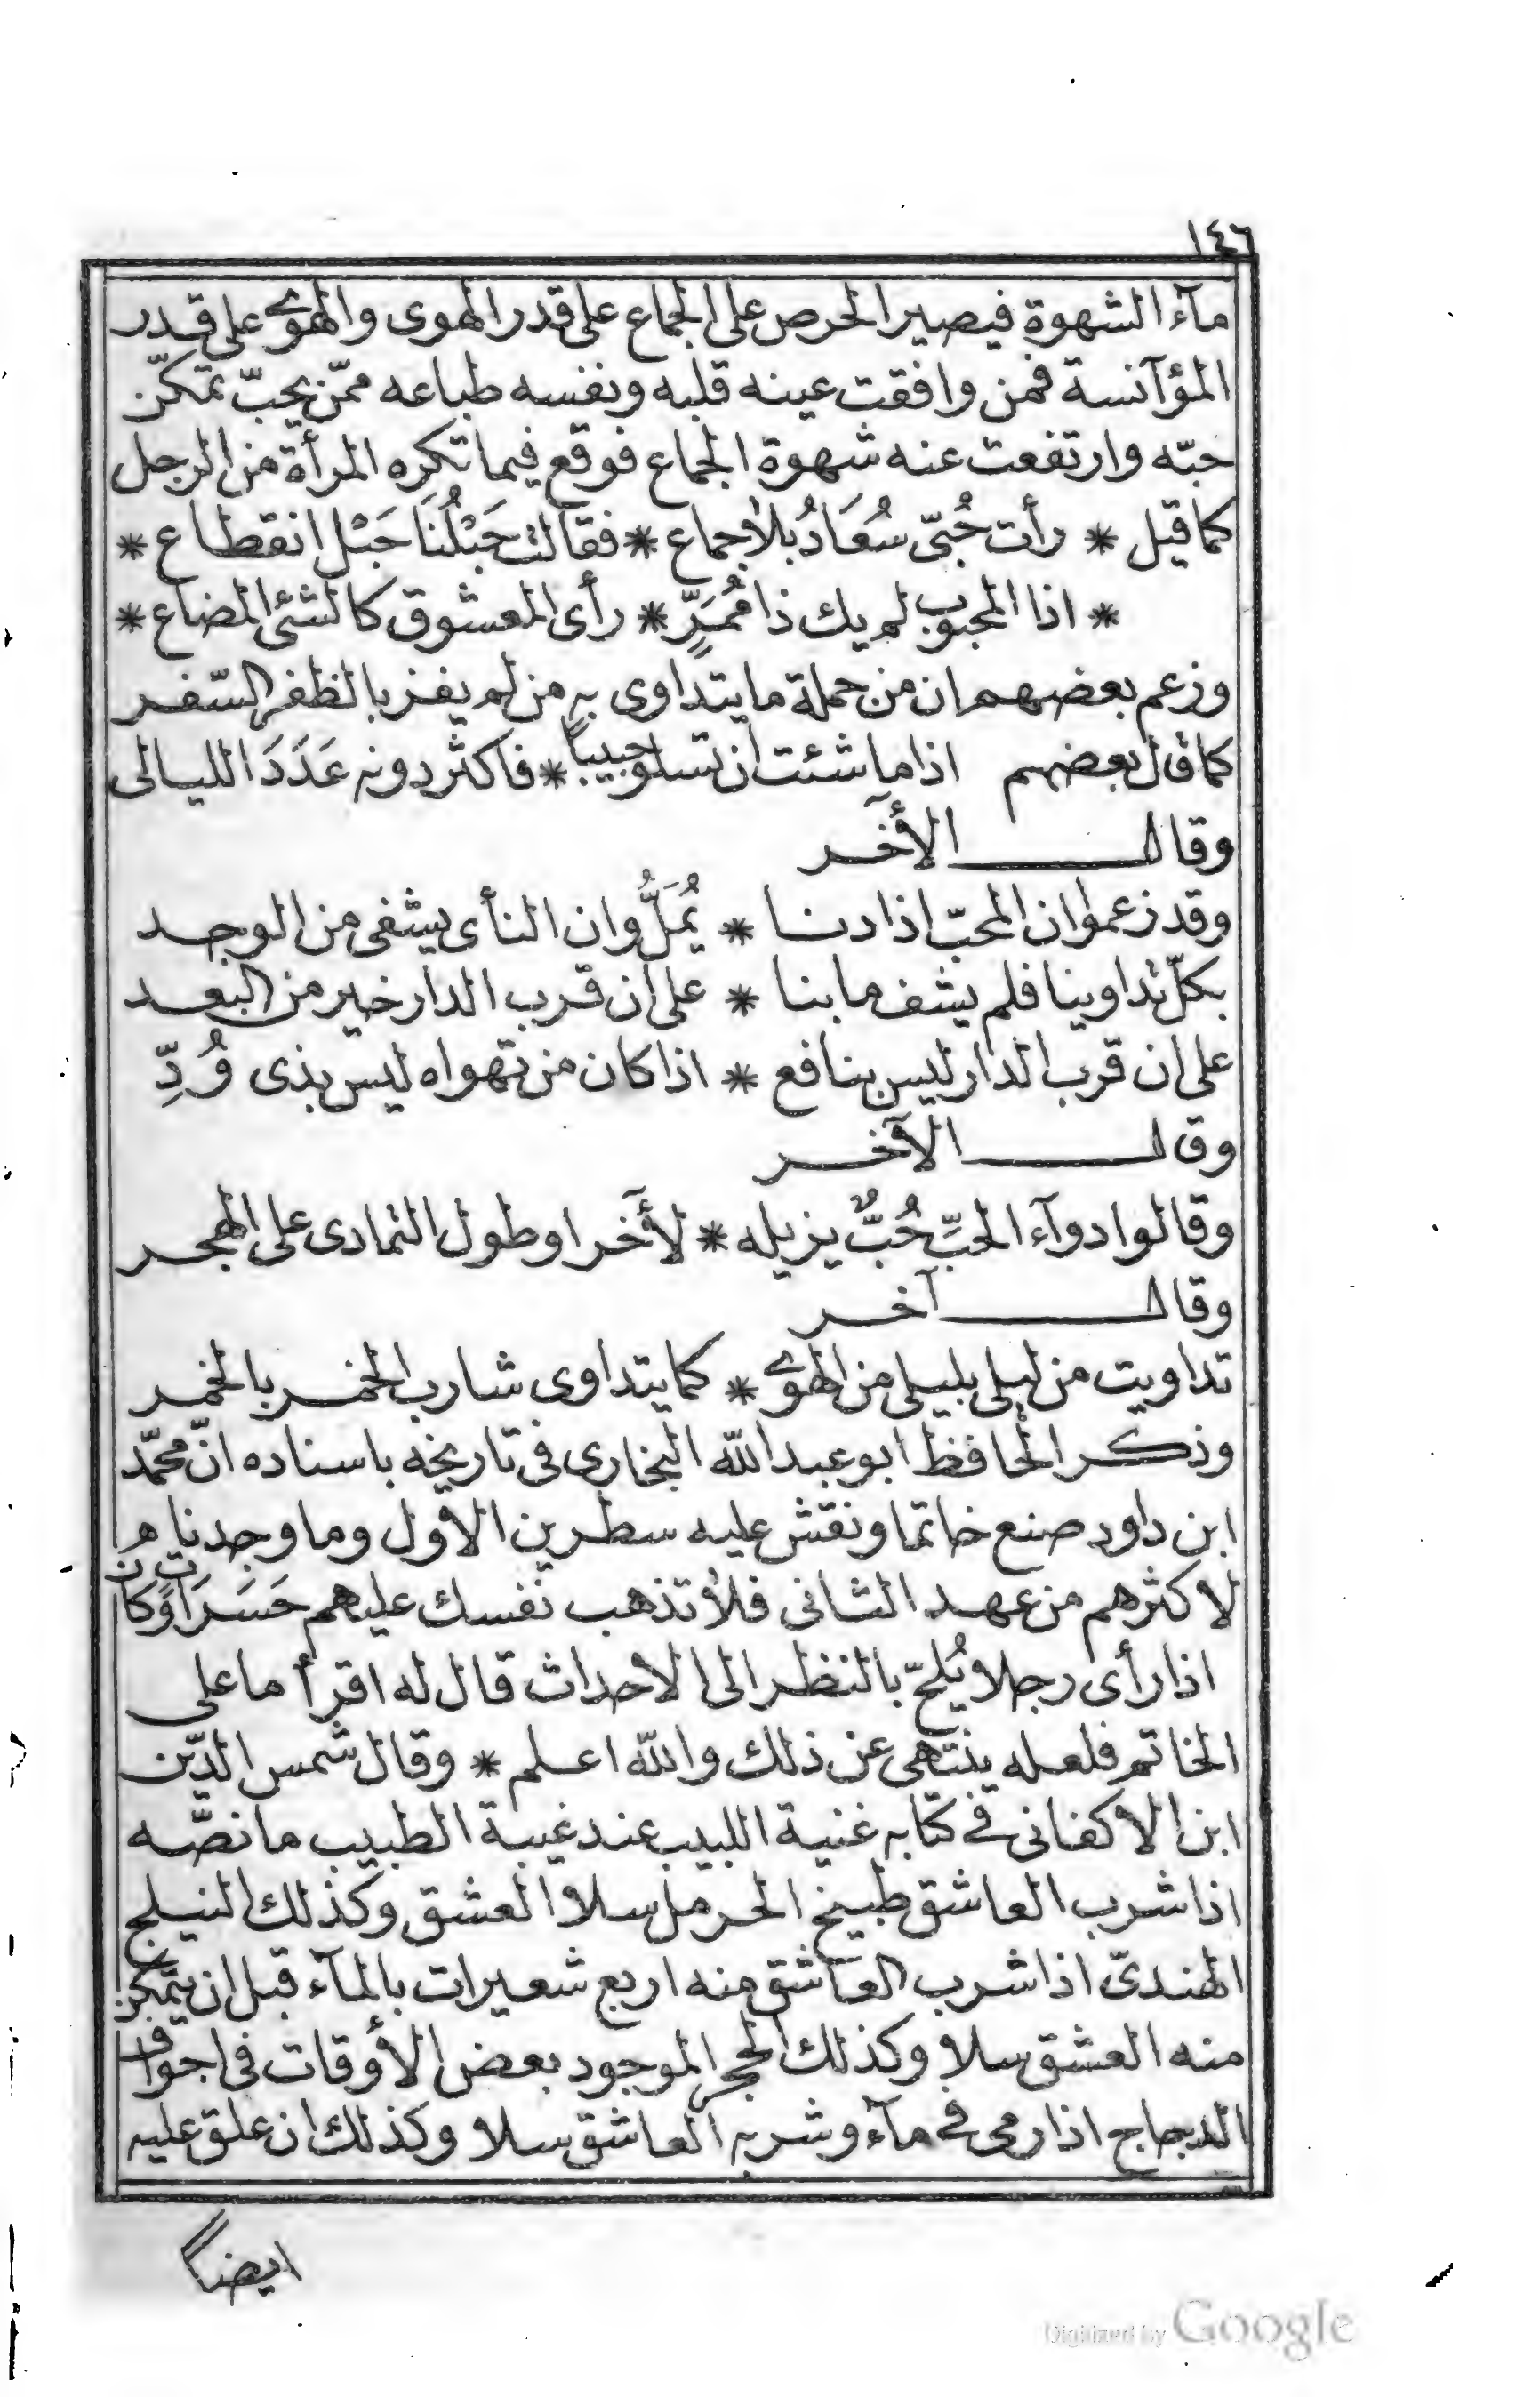 ١٤٦
مآء الشهوة فيصير الحرص على الجماع على قدر الهوى والهوى على قدر
المؤآنسة فمن وافقت عينه قلبه ونفسه طباعه ممّن يحبّ تمكّن
حبّه وارتفعت عنه شهوة الجماع فوقع فيما تكره المرأة من الرجل
كما قيل * رأت حُبّى سُعَادُ بلا جماع * فقالت حَبْلُنَا حَبْل انقطاع *
* اذا المحبوب لم يك ذا مُمَرٍّ * رأى المعشوق كالشئ المضاع *
وزعم بعضهم ان من جملة ما يتداوى به من لم يفز بالظفر السّفر
كما قال بعضهم اذا ما شئت ان تسلو حبيباً * فاكثر دونه عَدَدَ الليالى
وقال الأخر
وقد زعموا ان المحبّ اذا دنا * يُمَلُّ وان النأى يشفى من الوجد
بكلّ تداوينا فلم يشف ما بنا * على ان قرب الدار خير من البعد
على ان قرب الدار ليس بنافع * اذا كان من تهواه ليس بذى وُدِّ
وقال الآخر
وقالوا دوآء الحبِّ حُبٌّ يزيله * لأخر او طول التمادى على الهجر
وقال آخر
تداويت من ليلى بليلى من الهوى * كما يتداوى شارب الخمر بالخمر
وذكر الحافظ ابو عبد الله البخارى فى تاريخه باسناده انّ محمّد
ابن داود صنع خاتما ونقش عليه سطرين الاول وما وجدنا م
لاكثرهم من عهد الثانى فلا تذهب نفسك عليهم حَسَرَات وَكان
اذا رأى رجلا يُلحّ بالنظر الى الاحداث قال له اقرأ ما على
الخاتم فلعله ينتهى عن ذلك والله اعلم * وقال شمس الدّين
ابن الاكفانى فى كتابه غنية اللبيب عند غيبة الطبيب ما نصّه
اذا شرب العاشق طبيخ الحرمل سلا العشق وكذلك النيلج
الهندىّ اذا شرب العاشق منه اربع شعيرات بالمآء قبل ان يتمكن
منه العشق سلا وكذلك الحجر الموجود بعض الأوقات فى اجواف
الدجاج اذا رمى فى مآء وشربه العاشق سلا وكذلك ان علق عليه
ايضا
Digitized by Google